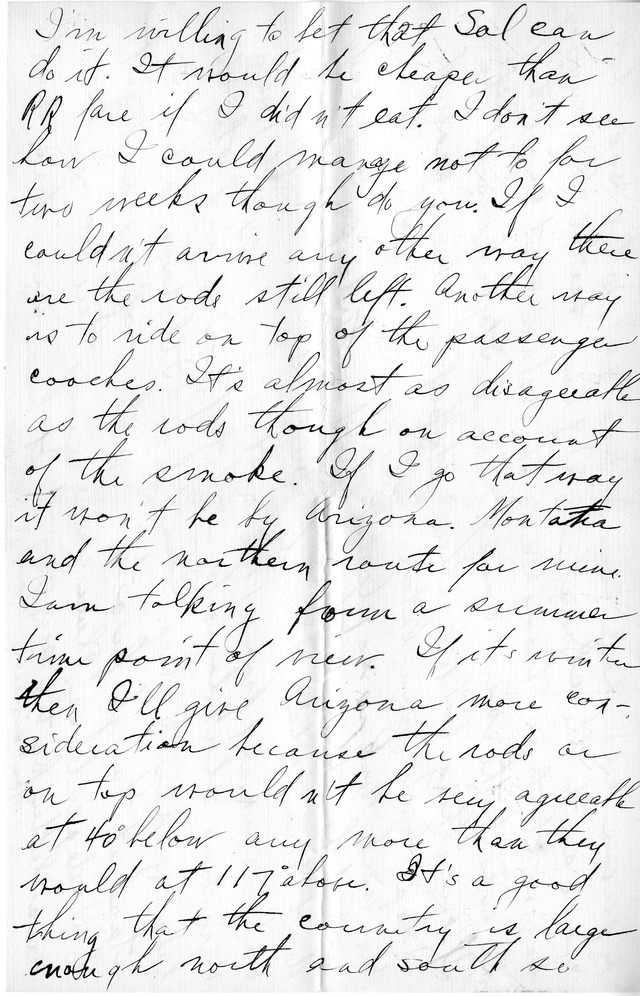 I'm willing to bet that Sol can
do it. It would be cheaper than
RR fare if I didn't eat. I don't see
how I could manage not to for
two weeks though do you. If I
couldn't arrive any other way there
are the rods still left. Another way
is to ride on top of the passenger
cooches. It's almost as disagreeable
as the rods though on account
of the smoke. If I go that way
it won't be by Arizona. Montana
and the northern route for mine.
I am talking form a summer
time point of view. If it's winter
then I'll give Arizona more con-
sideration because the rods or
on top wouldn't be very agreeable
at 40° below any more than they
would at 117° above. It's a good
thing that the country is large
enough north and south so